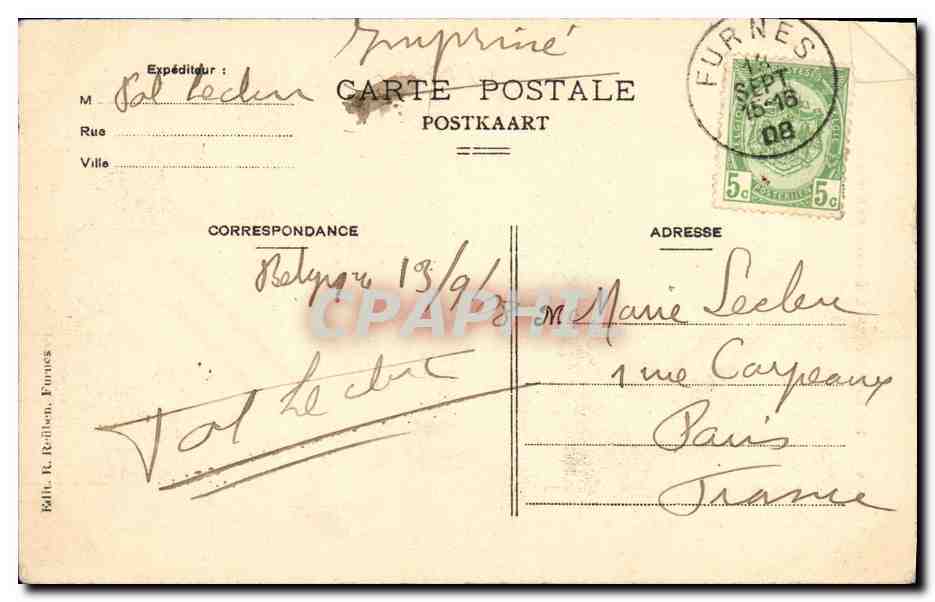 Imprimé
Expéditeur :
M Pol Leclere
CARTE POSTALE
Rue
POSTKAART
Ville
FURNES
14
SEPT
15-16
08
5c 5c
POSTERIJEN
CORRESPONDANCE
ADRESSE
Belgique 13/9/08
M Marie Leclere
1 rue Carpeaux
Paris
France
Pol Leclere
Edit. R. Reüben, Furnes
CPAPHIL